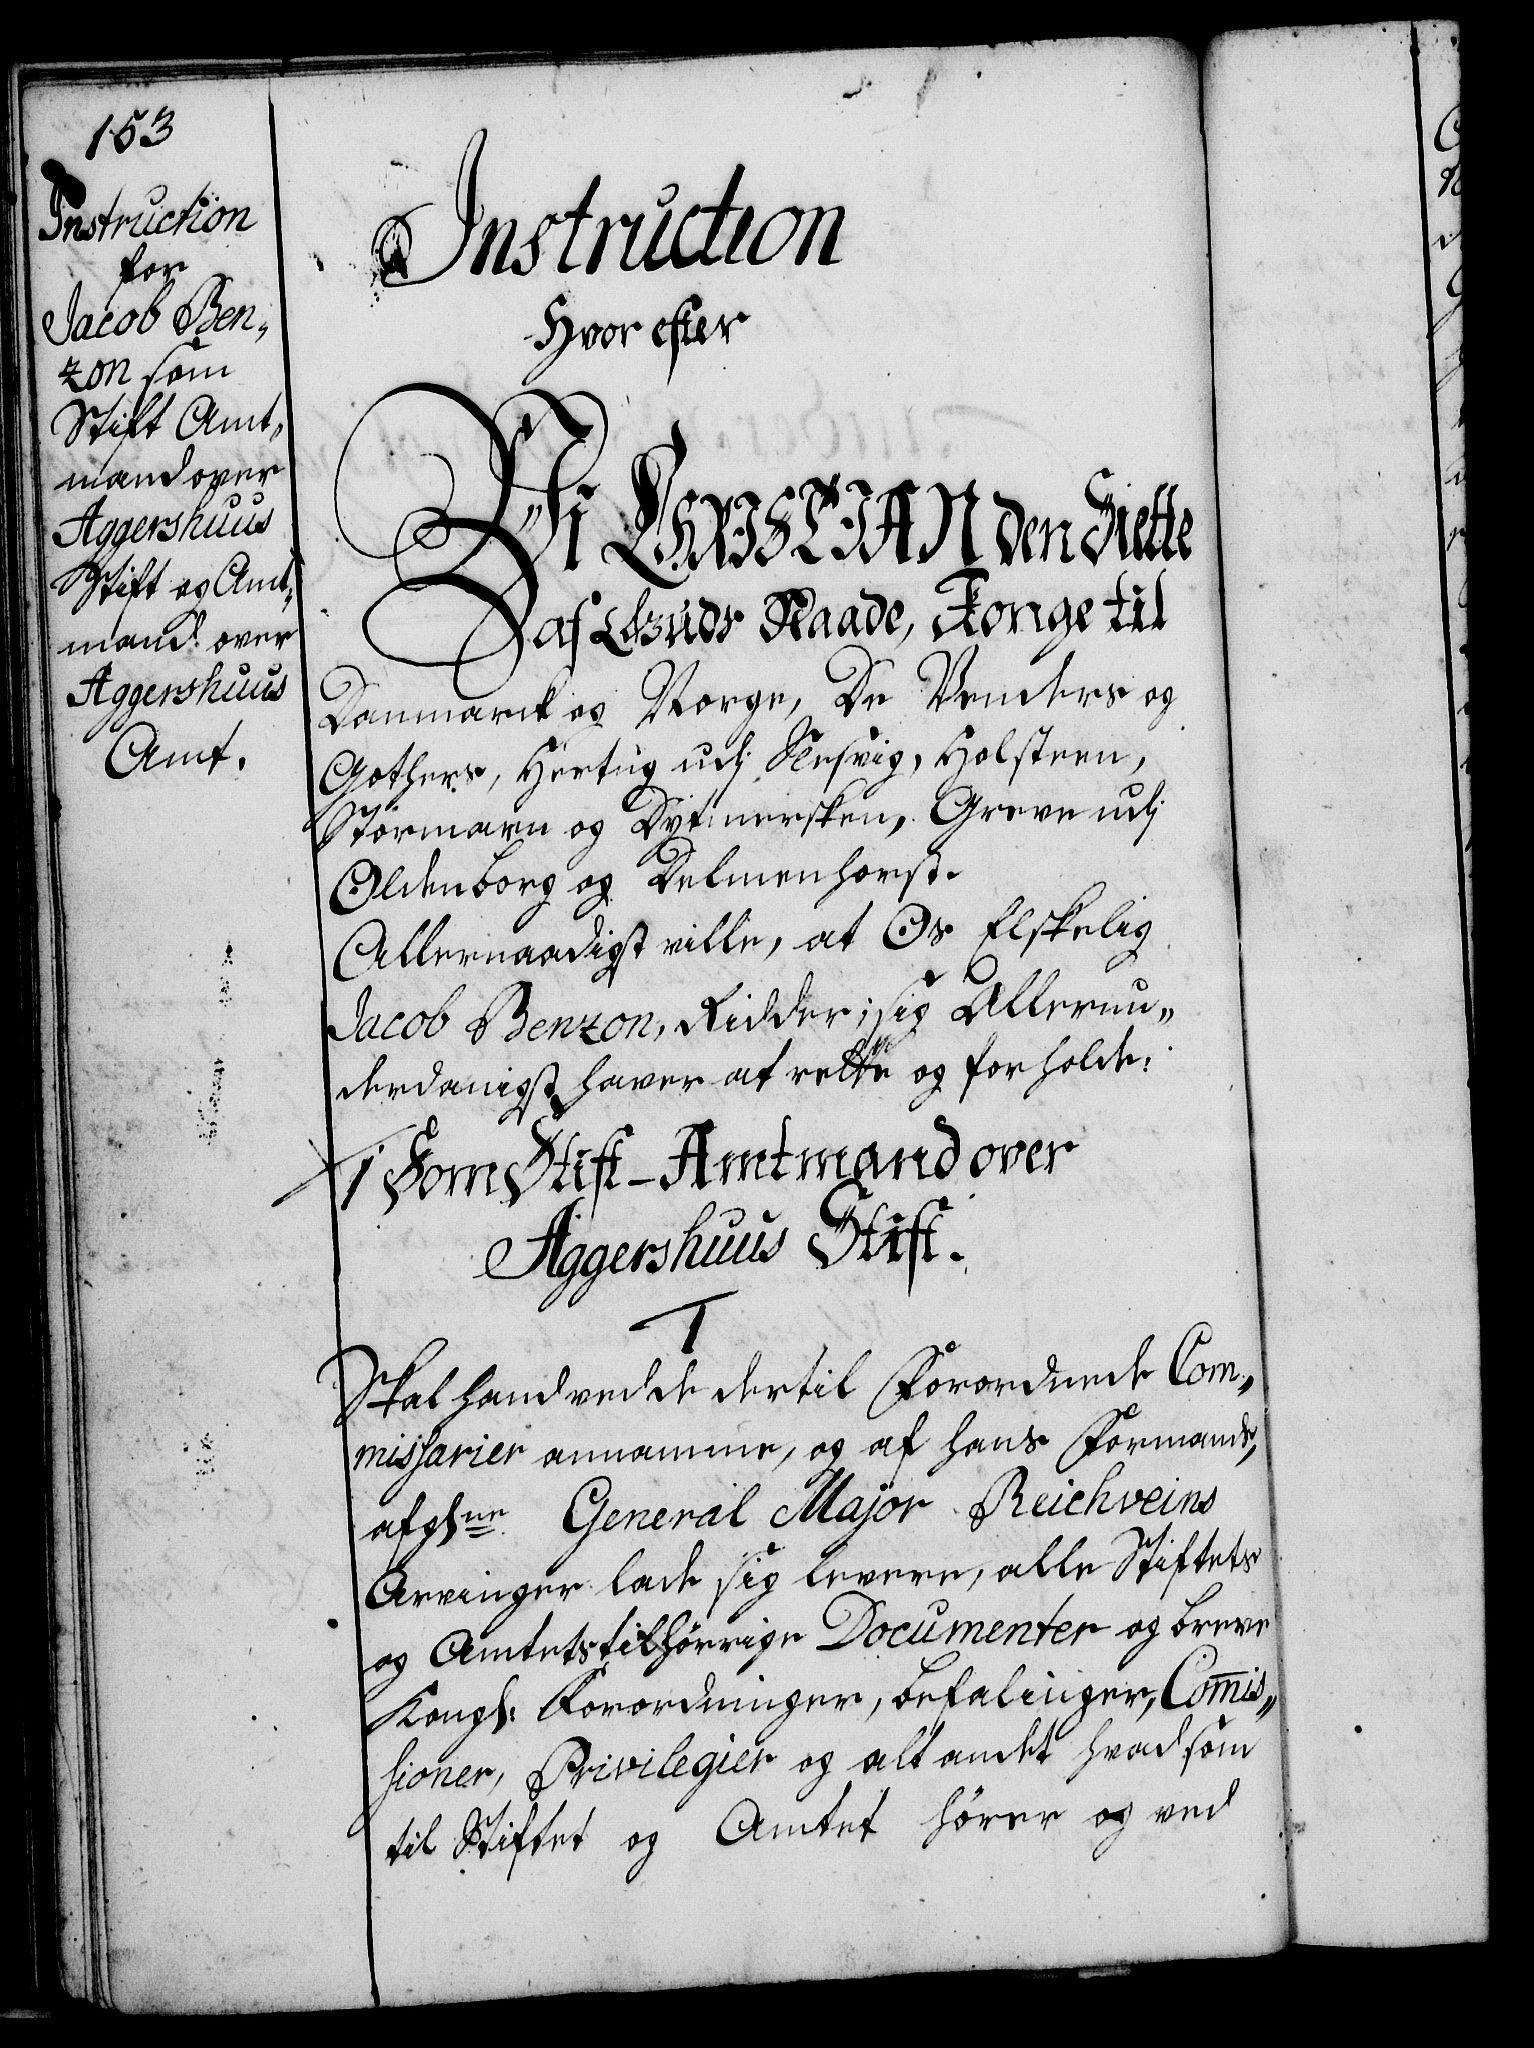 153
Instruction
for
Jacob Ben„
zon som
Stift Amt„
mand over
Aggershuus
Stift og Amt„
mand over
Aggershuus
Amt.
Instruction
Hvor efter
Vi CHRISTIAN den Siette
af Guds Naade, Konge til
Danmarck og Norge, De Venders og
Gothers, Hertug udj Slesvig, Holsteen,
Stormarn og Dytmersken, Greve udj
Oldenborg og Delmenhorst.
Allernaadigst ville, at Os Elskelig
Jacob Benzon, Ridder; sig Allerun„
derdanigst haver at rette og forholde:
1 Som Stift-Amtmand over
Aggershuus Stift.
1
Skal hand ved de dertil Forordnede Com„
missarier annamme, og af hans Formands,
afghne General Major Reichveins
Arvinger lade sig levere, alle Stiftets
og Amtets tilhørrige Documenter og breve
Kongl: Forordninger, befalinger, Com̅is„
sioner, Privilegier og alt andet hvad som
til Stiftet og Amtet hörer og ved